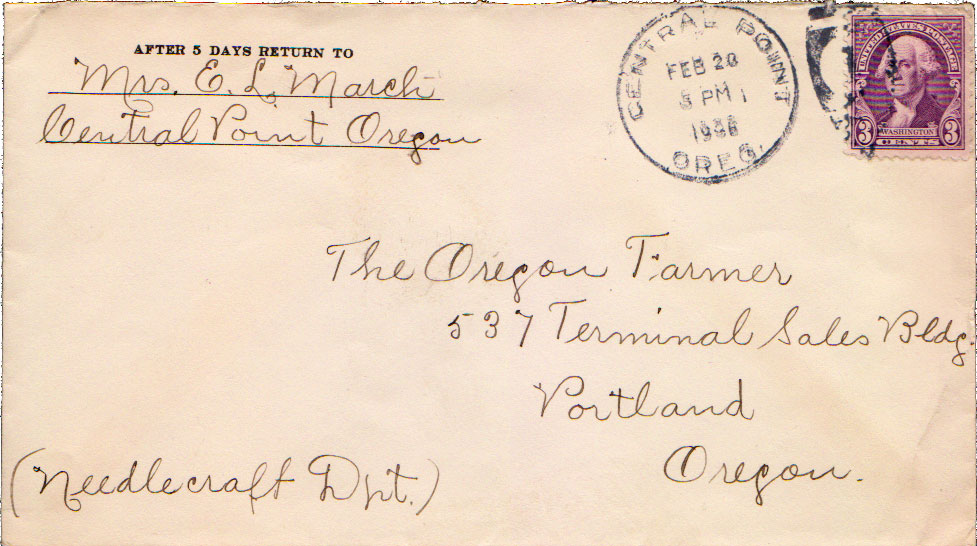 AFTER 5 DAYS RETURN TO
Mrs. E. L. March
Central Point Oregon
CENTRAL POINT
FEB 20
5 PM
OREG.
UNITED STATES POSTAGE
3 WASHINGTON 3
CENTS
The Oregon Farmer
537 Terminal Sales Bldg.
Portland
Oregon.
(Needlecraft Dpt.)